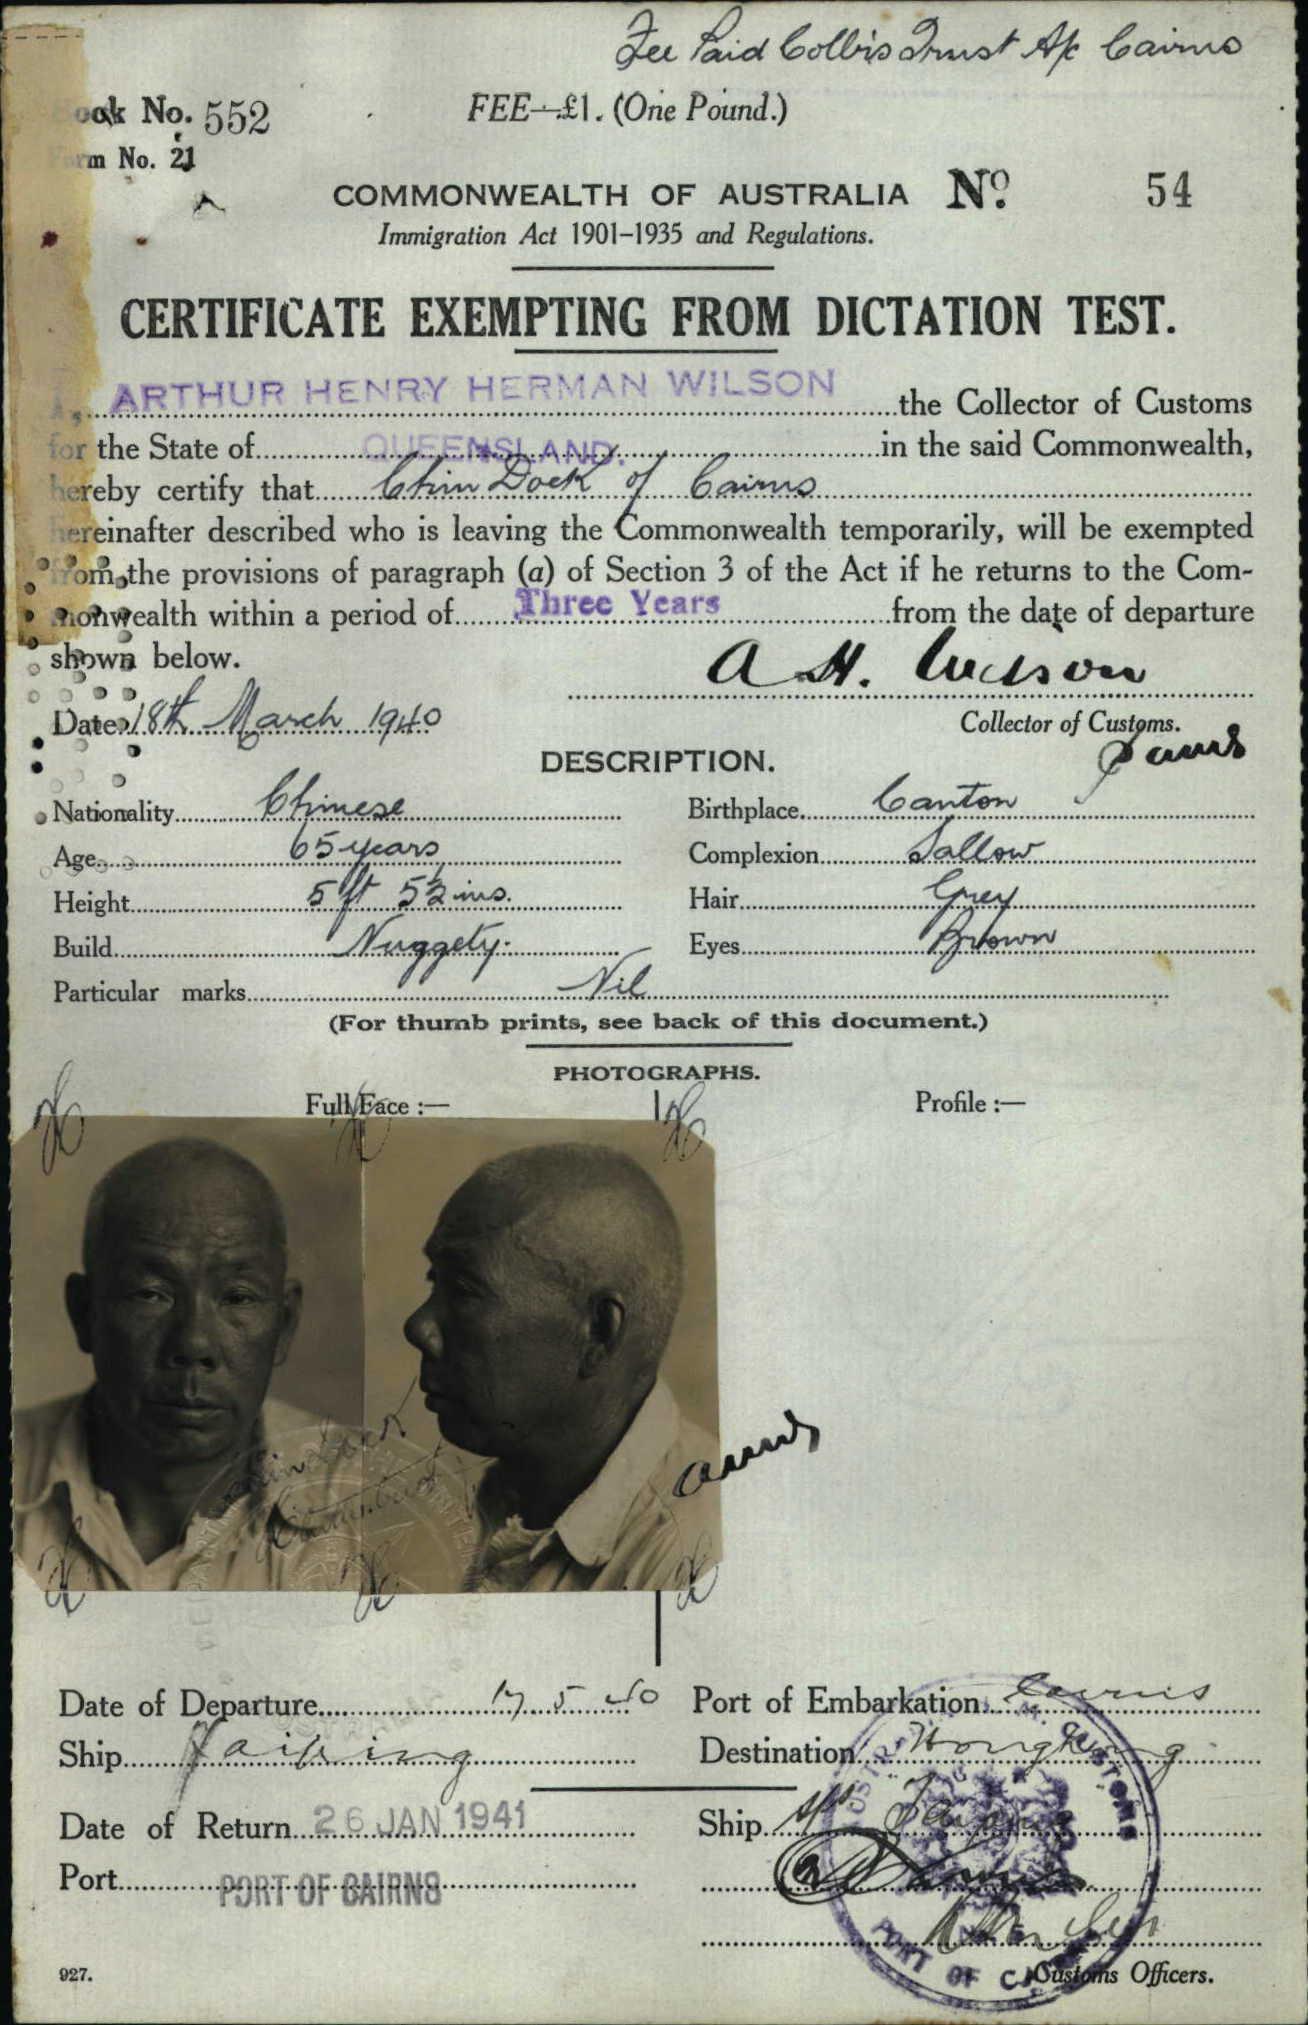 Fee Paid Collis Trust A/c Cairns
Book No. 552
FEE—£1. (One Pound.)
Form No. 21
COMMONWEALTH OF AUSTRALIA No. 54
Immigration Act 1901–1935 and Regulations.
CERTIFICATE EXEMPTING FROM DICTATION TEST.
I, ARTHUR HENRY HERMAN WILSON the Collector of Customs
for the State of QUEENSLAND. in the said Commonwealth,
hereby certify that Chin Dock of Cairns
hereinafter described who is leaving the Commonwealth temporarily, will be exempted
from the provisions of paragraph (a) of Section 3 of the Act if he returns to the Com-
monwealth within a period of Three Years from the date of departure
shown below.
A H. Wilson
Date 18th March 1940
Collector of Customs.
DESCRIPTION.
Nationality Chinese
Birthplace Canton
Age 65 years
Complexion Sallow
Height 5 ft 5½ ins.
Hair Grey
Build Nuggety.
Eyes Brown
Particular marks Nil
(For thumb prints, see back of this document.)
PHOTOGRAPHS.
Full Face :—
Profile :—
Date of Departure 17.5.40
Port of Embarkation Cairns
Ship Taiping
Destination Hong Kong
Date of Return 26 JAN 1941
Ship
Port PORT OF CAIRNS
CUSTOMS
PORT OF
927.
Customs Officers.